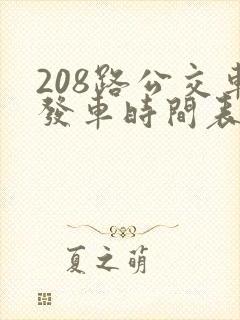 208路公交車
發車時間表
夏之萌